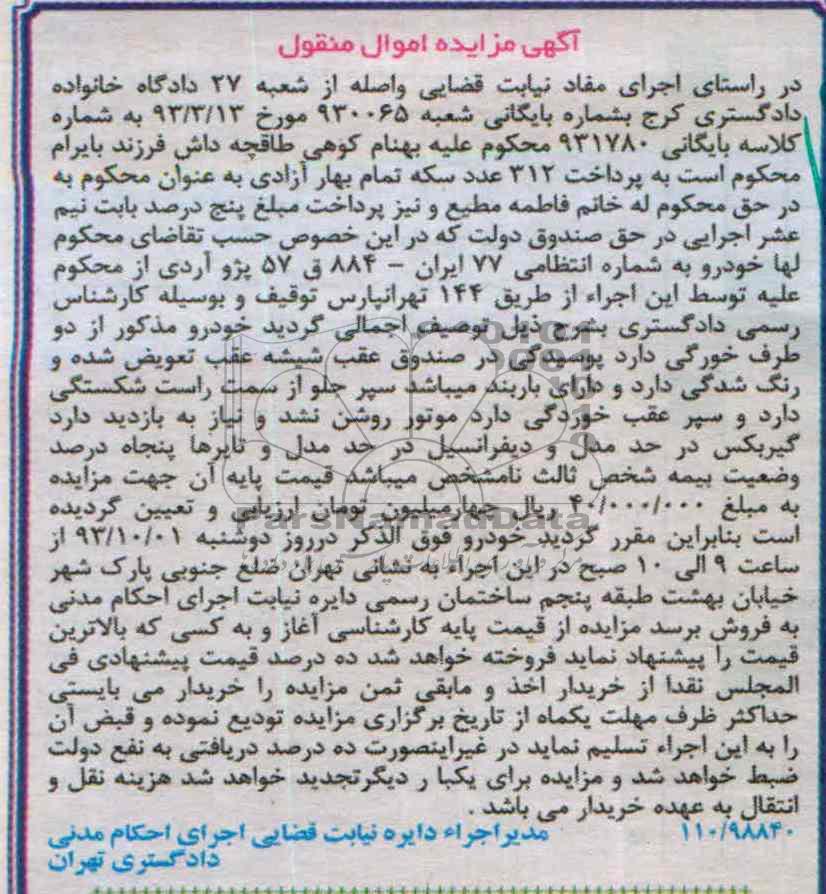 آگهی مزایده اموال منقول
در راستای اجرای مفاد نیابت قضایی واصله از شعبه ۲۷ دادگاه خانواده
دادگستری کرج بشماره بایگانی شعبه ۹۳۰۰۶۵ مورخ ۹۳/۳/۱۳ به شماره
کلاسه بایگانی ۹۳۱۷۸۰ محکوم علیه بهنام کوهی طاقچه داش فرزند بایرام
محکوم است به پرداخت ۳۱۲ عدد سکه تمام بهار آزادی به عنوان محکوم به
در حق محکوم له خانم فاطمه مطیع و نیز پرداخت مبلغ پنج درصد بابت نیم
عشر اجرایی در حق صندوق دولت که در این خصوص حسب تقاضای محکوم
لها خودرو به شماره انتظامی ۷۷ ایران – ۸۸۴ ق ۵۷ پژو آردی از محکوم
علیه توسط این اجراء از طریق ۱۴۴ تهرانپارس توقیف و بوسیله کارشناس
رسمی دادگستری بشرح ذیل توصیف اجمالی گردید خودرو مذکور از دو
طرف خورگی دارد پوسیدگی در صندوق عقب شیشه عقب تعویض شده و
رنگ شدگی دارد و دارای باربند میباشد سپر جلو از سمت راست شکستگی
دارد و سپر عقب خوردگی دارد موتور روشن نشد و نیاز به بازدید دارد
گیربکس در حد مدل و دیفرانسیل در حد مدل و تایرها پنجاه درصد
وضعیت بیمه شخص ثالث نامشخص میباشد قیمت پایه آن جهت مزایده
به مبلغ ۴۰/۰۰۰/۰۰۰ ریال چهارمیلیون تومان ارزیابی و تعیین گردیده
است بنابراین مقرر گردید خودرو فوق الذکر درروز دوشنبه ۹۳/۱۰/۰۱ از
ساعت ۹ الی ۱۰ صبح در این اجراء به نشانی تهران ضلع جنوبی پارک شهر
خیابان بهشت طبقه پنجم ساختمان رسمی دایره نیابت اجرای احکام مدنی
به فروش برسد مزایده از قیمت پایه کارشناسی آغاز و به کسی که بالاترین
قیمت را پیشنهاد نماید فروخته خواهد شد ده درصد قیمت پیشنهادی فی
المجلس نقدا از خریدار اخذ و مابقی ثمن مزایده را خریدار می بایستی
حداکثر ظرف مهلت یکماه از تاریخ برگزاری مزایده تودیع نموده و قبض آن
را به این اجراء تسلیم نماید در غیراینصورت ده درصد دریافتی به نفع دولت
ضبط خواهد شد و مزایده برای یکبا ر دیگرتجدید خواهد شد هزینه نقل و
انتقال به عهده خریدار می باشد .
۱۱۰/۹۸۸۴۰ مدیراجراء دایره نیابت قضایی اجرای احکام مدنی
دادگستری تهران
ParsNamadData